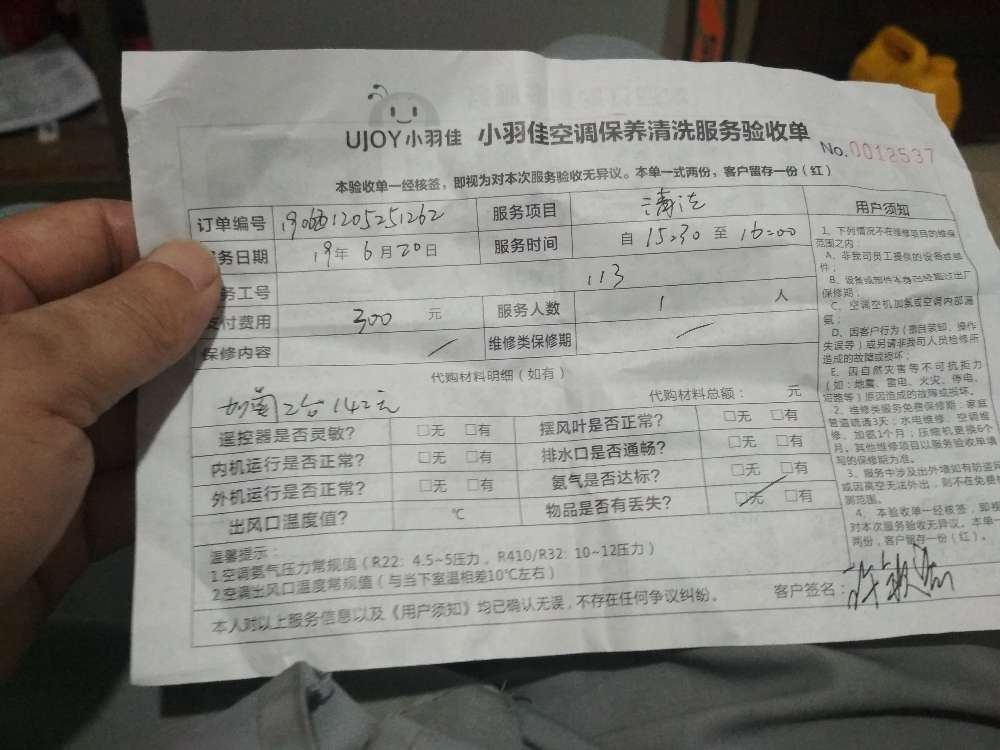 UJOY小羽佳 小羽佳空调保养清洗服务验收单
No.0012537
本验收单一经核签，即视为对本次服务验收无异议。本单一式两份，客户留存一份（红）
订单编号 服务项目 清洗
务日期 19年6月20日 服务时间 自 15:30 至 16:00
务工号 113
付费用 300 元 服务人数 1 人
保修内容 / 维修类保修期 /
代购材料明细（如有）
2台142元 代购材料总额： 元
遥控器是否灵敏？ □无 □有 摆风叶是否正常？ □无 □有
内机运行是否正常？ □无 □有 排水口是否通畅？ □无 □有
外机运行是否正常？ □无 □有 氨气是否达标？ □无 □有
出风口温度值？ ℃ 物品是否有丢失？ □无 □有
温馨提示：
1.空调氨气压力常规值（R22：4.5~5压力，R410/R32：10~12压力）
2.空调出风口温度常规值（与当下室温相差10℃左右）
本人对以上服务信息以及《用户须知》均已确认无误，不存在任何争议纠纷。
客户签名：
用户须知
1、下列情况不在维修项目的维保
范围之内：
A、非我司员工提供的设备或部
件；
B、设备或部件本身已经超过出厂
保修期；
C、空调空机加氨或空调内部漏
氨；
D、因客户行为（擅自装卸、操作
失误等）或另请非我司人员检修所
造成的故障或损坏；
E、因自然灾害等不可抗拒力
（如：地震、雷电、火灾、停电、
短路等）原因造成的故障或损坏。
2、维修类服务免费保修期：家庭
管道疏通3天；水电维修、空调维
修、加氨1个月；压缩机更换6个
月。其他维修项目以服务验收单填
写的保修期为准。
3、服务中涉及出外墙如有防盗网
或因高空无法外出，则不在免费检
测范围。
4、本验收单一经核签，即视为
对本次服务验收无异议。本单一式
两份，客户留存一份（红）。